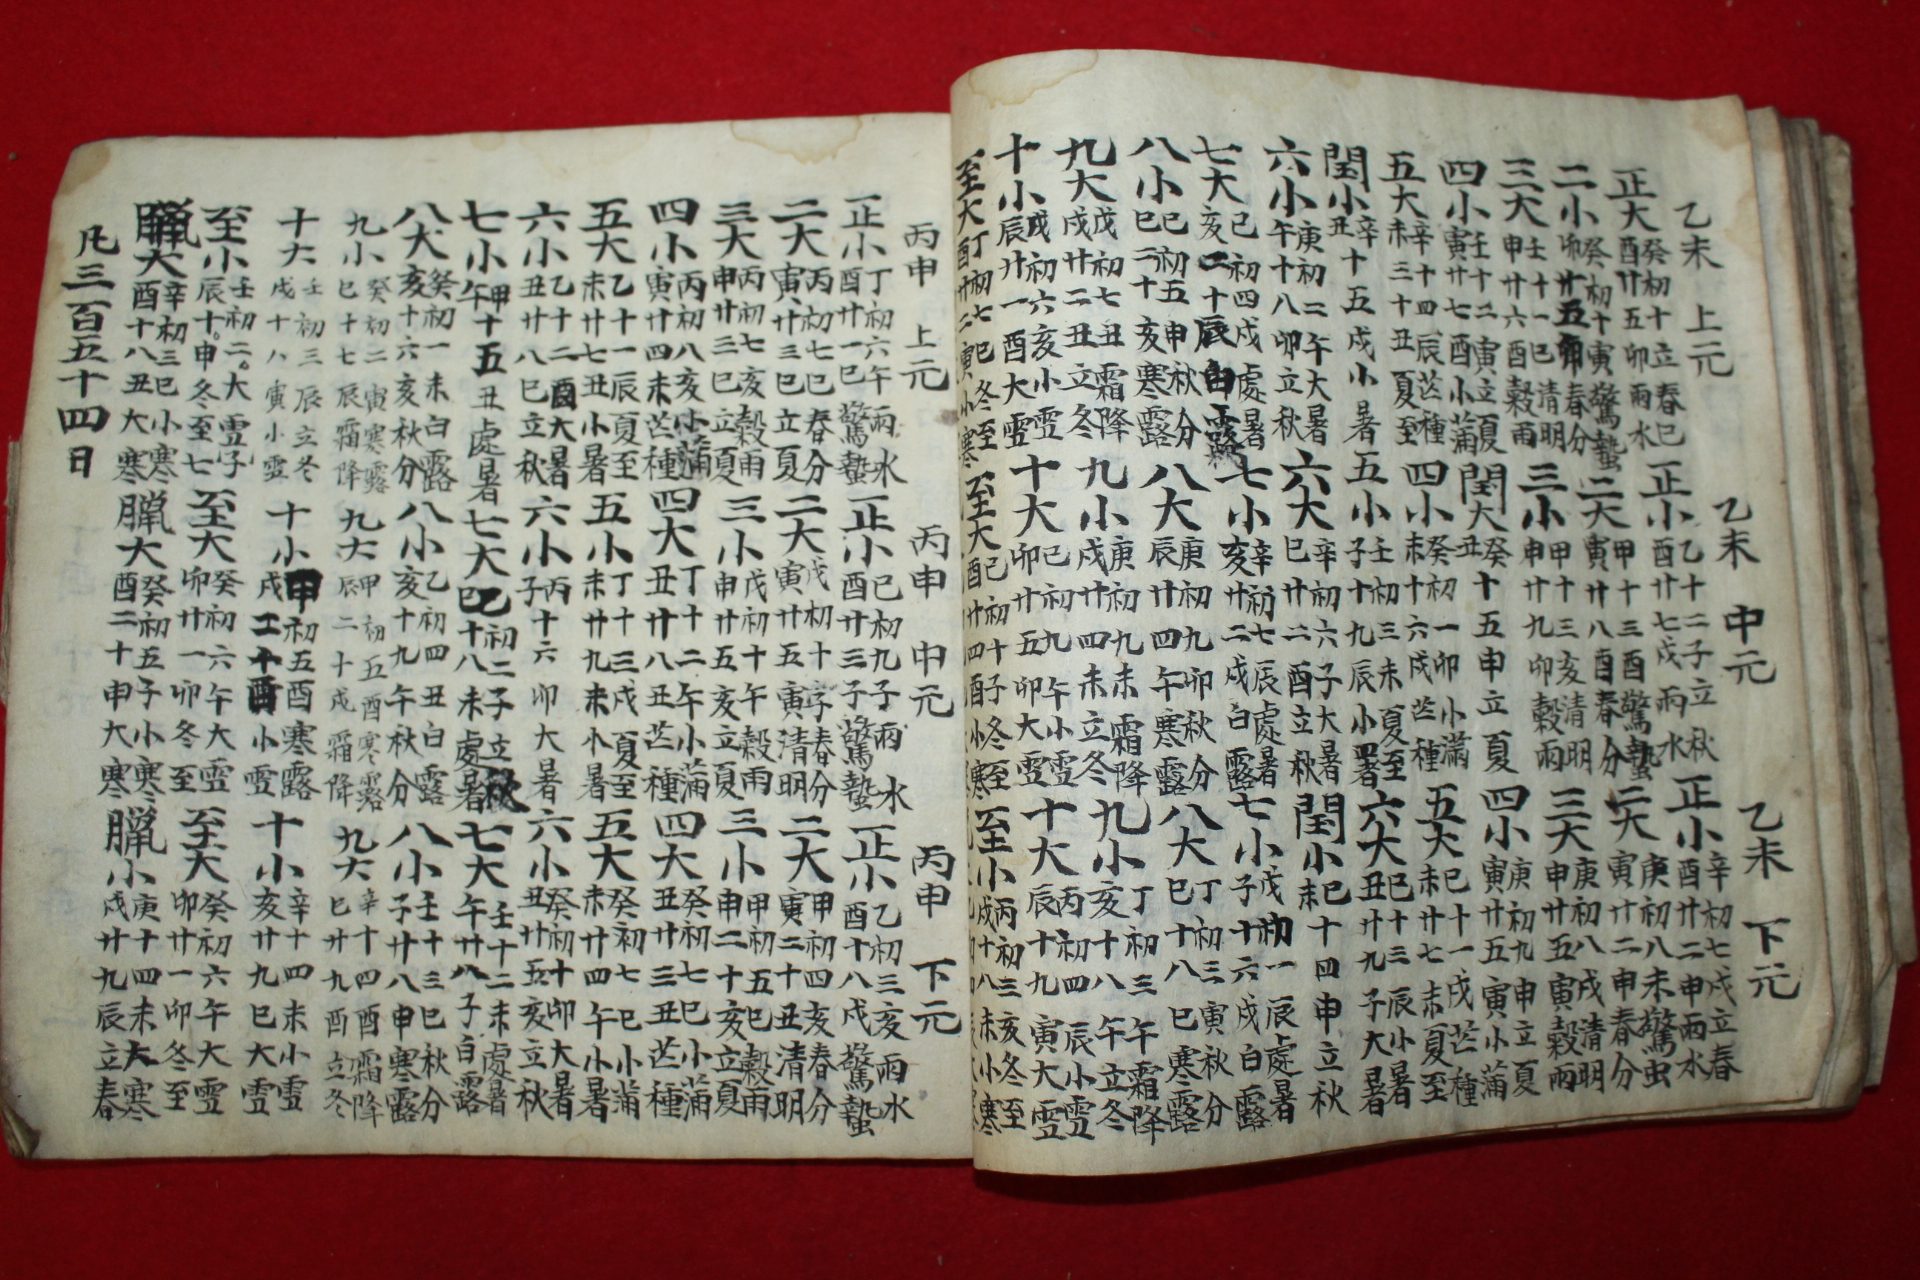 乙未 上元
正大 癸初十立春巳
酉廿五卯雨水
二小 癸初十寅驚蟄
卯廿五卯春分
三大 壬十一巳清明
申廿六酉穀雨
四小 壬十二寅立夏
寅廿七酉小蒲
五大 辛十四辰芒種
未三十丑夏至
閏小 辛十五戌小暑
丑
六小 庚初二午大暑
午十八卯立秋
七大 己初四戌處暑
亥二十辰白露
八小 己初五申秋分
巳二十亥寒露
九大 戊初七丑霜降
戌廿二丑立冬
十小 戊初六亥小雪
辰廿一酉大雪
至大 丁初七巳冬至
酉廿二寅小寒
乙未 中元
正小 乙十二子立秋
酉廿七戌雨水
二大 甲十三酉驚蟄
寅廿八酉春分
三小 甲十三亥清明
申廿九卯穀雨
閏大 癸十五申立夏
丑
四小 癸初一卯小滿
未十六戌芒種
五小 壬初三未夏至
子十九辰小暑
六大 辛初六子大暑
巳廿二酉立秋
七小 辛初七辰處暑
亥廿二戌白露
八大 庚初九卯秋分
辰廿四午寒露
九小 庚初九未霜降
戌廿四未立冬
十大 己初九午小雪
卯廿五卯大雪
至大 己初十子冬至
酉廿四酉小寒
乙未 下元
正小 辛初七戌立春
酉廿二申雨水
二大 庚初八未驚虫
寅廿二申春分
三大 庚初八戌清明
申廿五寅穀雨
四小 庚初九申立夏
寅廿五寅小蒲
五大 己十一戌芒種
未廿七未夏至
六大 己十三辰小暑
丑廿九子大暑
閏小 己十四申立秋
未
七小 戊初一辰處暑
子十六戌白露
八大 丁初三寅秋分
巳十八巳寒露
九小 丁初三午霜降
亥十八午立冬
十大 丙初四辰小雪
辰十九寅大雪
至小 丙初三亥冬至
戌十八未小寒
丙申 上元
正小 丁初六午雨水
酉廿一巳驚蟄
二大 丙初七巳春分
寅廿三巳立夏
三大 丙初七亥穀雨
申廿三巳立夏
四小 丙初八亥小蒲
寅廿四未芒種
五大 乙十一辰夏至
未廿七丑小暑
六小 乙十二酉大暑
丑廿八巳立秋
七小 甲十五丑處暑
午
八大 癸初一未白露
亥十六亥秋分
九小 癸初二寅寒露
巳十七辰霜降
十大 壬初三辰立冬
戌十八寅小雪
至小 壬初二子大雪
辰十七申冬至
臘大 辛初三巳小寒
酉十八丑大寒
凡三百五十四日
丙申 中元
正小 己初九子雨水
酉廿三子驚蟄
二大 戊初十子春分
寅廿五寅清明
三小 戊初十午穀雨
申廿五亥立夏
四大 丁十二午小滿
丑廿八丑芒種
五小 丁十三戌夏至
未廿九未小暑
六小 丙十六卯大暑
子
七大 乙初二子立秋
巳十八未處暑
八小 乙初四丑白露
亥十九午秋分
九大 甲初五酉寒露
辰二十戌霜降
十小 甲初五酉寒露
戌二十酉小雪
至大 癸初六午大雪
卯廿一卯冬至
臘大 癸初五子小寒
酉二十申大寒
丙申 下元
正小 乙初三亥雨水
酉十八戌驚蟄
二大 甲初四亥春分
寅二十丑清明
三小 甲初五巳穀雨
申二十亥立夏
四大 癸初七巳小蒲
丑廿三丑芒種
五大 癸初七巳小蒲
未廿四午小暑
六小 癸初十卯大暑
丑廿五亥立秋
七大 壬十二未處暑
午廿八子白露
八小 壬十三巳秋分
子廿八申寒露
九大 辛十四酉霜降
巳廿九酉立冬
十小 辛十四未小雪
亥廿九巳大雪
至大 癸初六午大雪
卯廿一卯冬至
臘小 庚十四未大寒
戌廿九辰立春